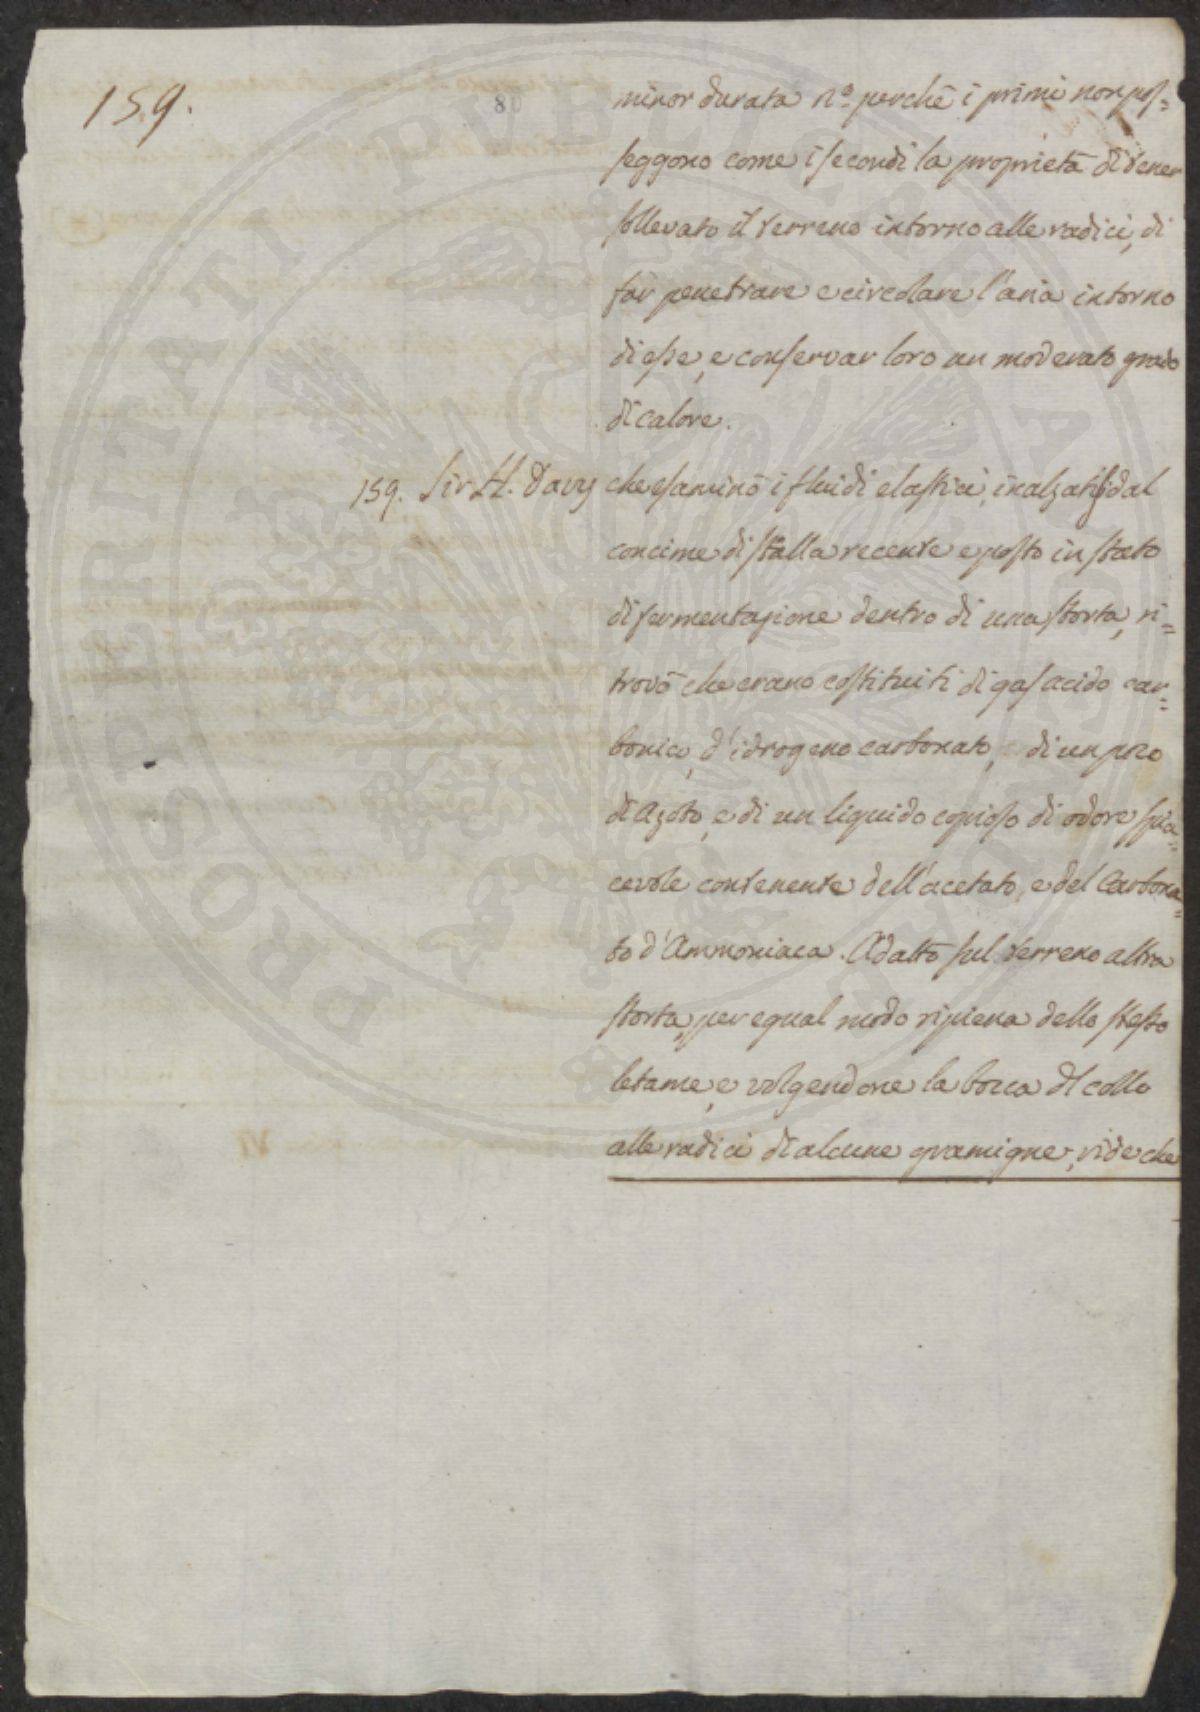 159.
80
minor durata n.º perchè i primi non pos=
seggono come i secondi la proprietà di tener
sollevato il terreno intorno alle radici, di
far penetrare e circolare l'aria intorno
di esse, e conservar loro un moderato grado
di calore.
159. Sir H. Davy che esaminò i fluidi elastici, inalzatisi dal
concime di stalla recente e posto in stato
di fermentazione dentro di una storta, ri=
trovò che erano costituiti di gas acido car=
bonico, d'idrogeno carbonato, di un poco
di Azoto, e di un liquido copioso di odore spia=
cevole contenente dell'acetato, e del Carbona=
to d'Ammoniaca. Adattò sul terreno altra
storta, per egual modo ripiena dello stesso
letame, e volgendone la bocca del collo
alle radici di alcune gramigne, vide che
PROSPERITATI PVBLICAE AVGENDAE